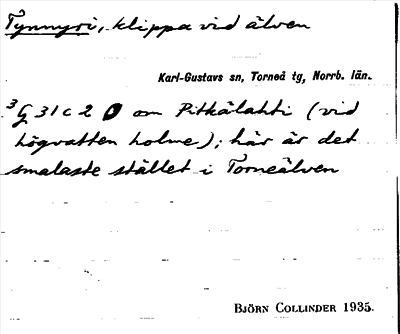 Tynnyri, klippa vid älven
Karl-Gustavs sn, Torneå tg, Norrb. län.
³G 31 c 2 O om Pitkälahti (vid
högvatten holme); här är det
smalaste stället i Torneälven
BJÖRN COLLINDER 1935.